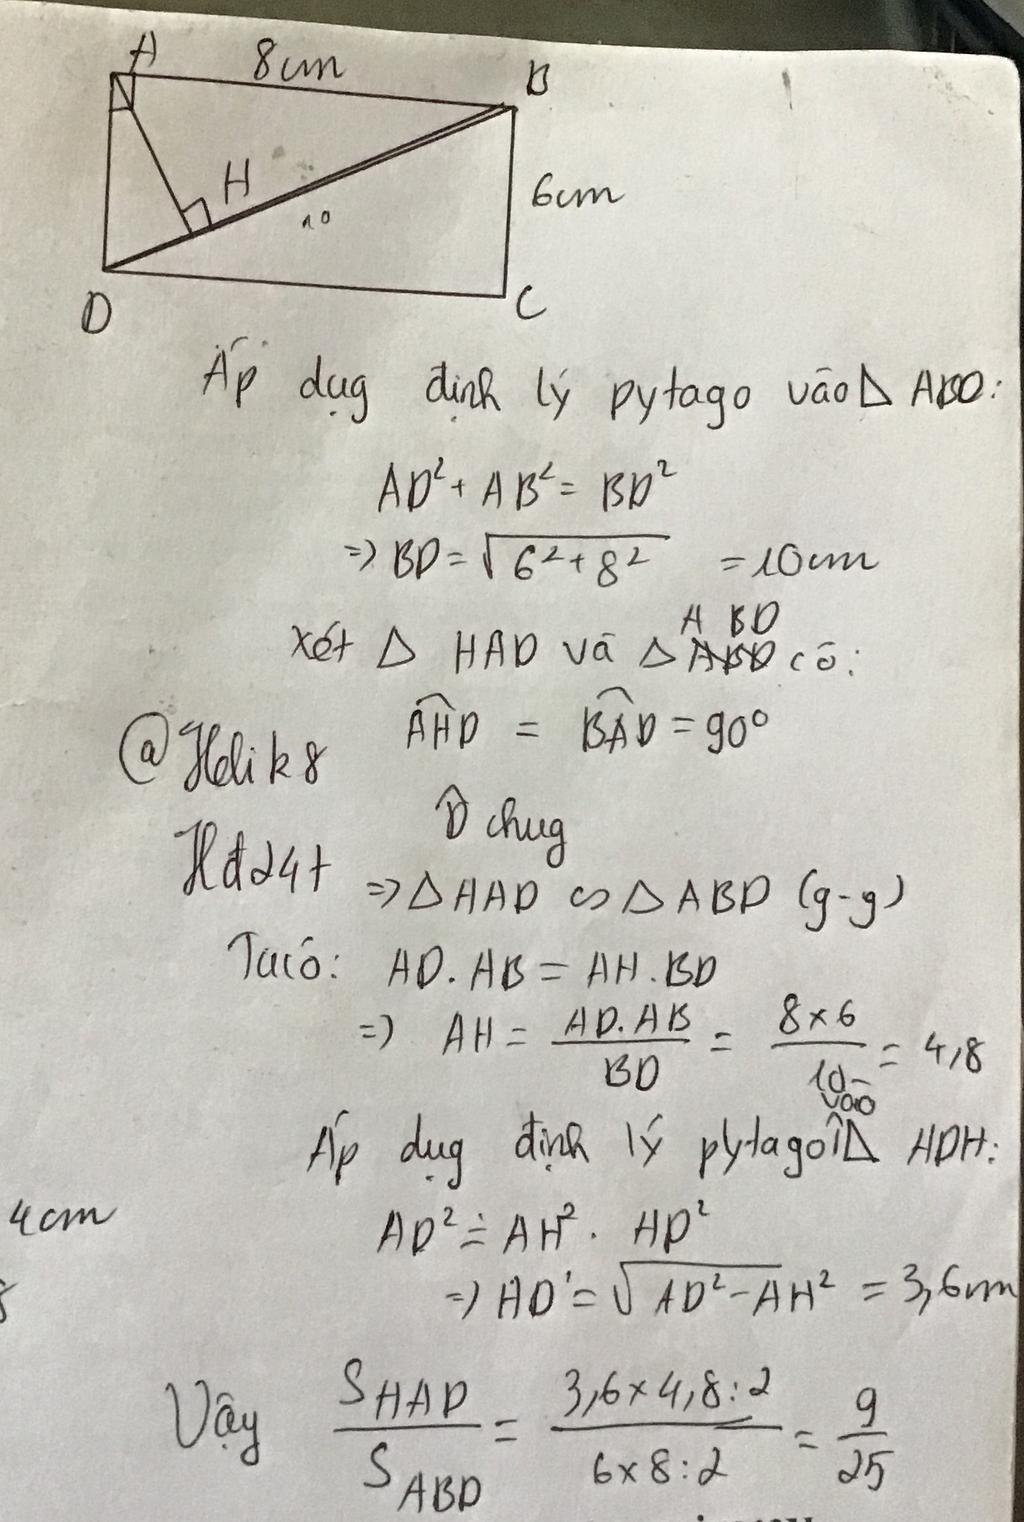 A 8cm B
H
10
6cm
D C
Áp dụg định lý pytago vào Δ ABD:
AD² + AB² = BD²
=> BD = √6² + 8² = 10cm
A BD
Xét Δ HAD và Δ ABD có:
AHD = BAD = 90°
@Helik8
D̂ chug
Hđ24t
=> Δ HAD ∽ Δ ABD (g-g)
Ta có: AD.AB = AH.BD
=> AH = AD.AB / BD = 8x6 / 10 = 4,8
vào
Áp dụg định lý pytago Δ HDH:
4cm
AD² = AH² . HD²
=> HD = √AD² - AH² = 3,6cm
Vậy S HAD / S ABD = 3,6x4,8:2 / 6x8:2 = 9/25